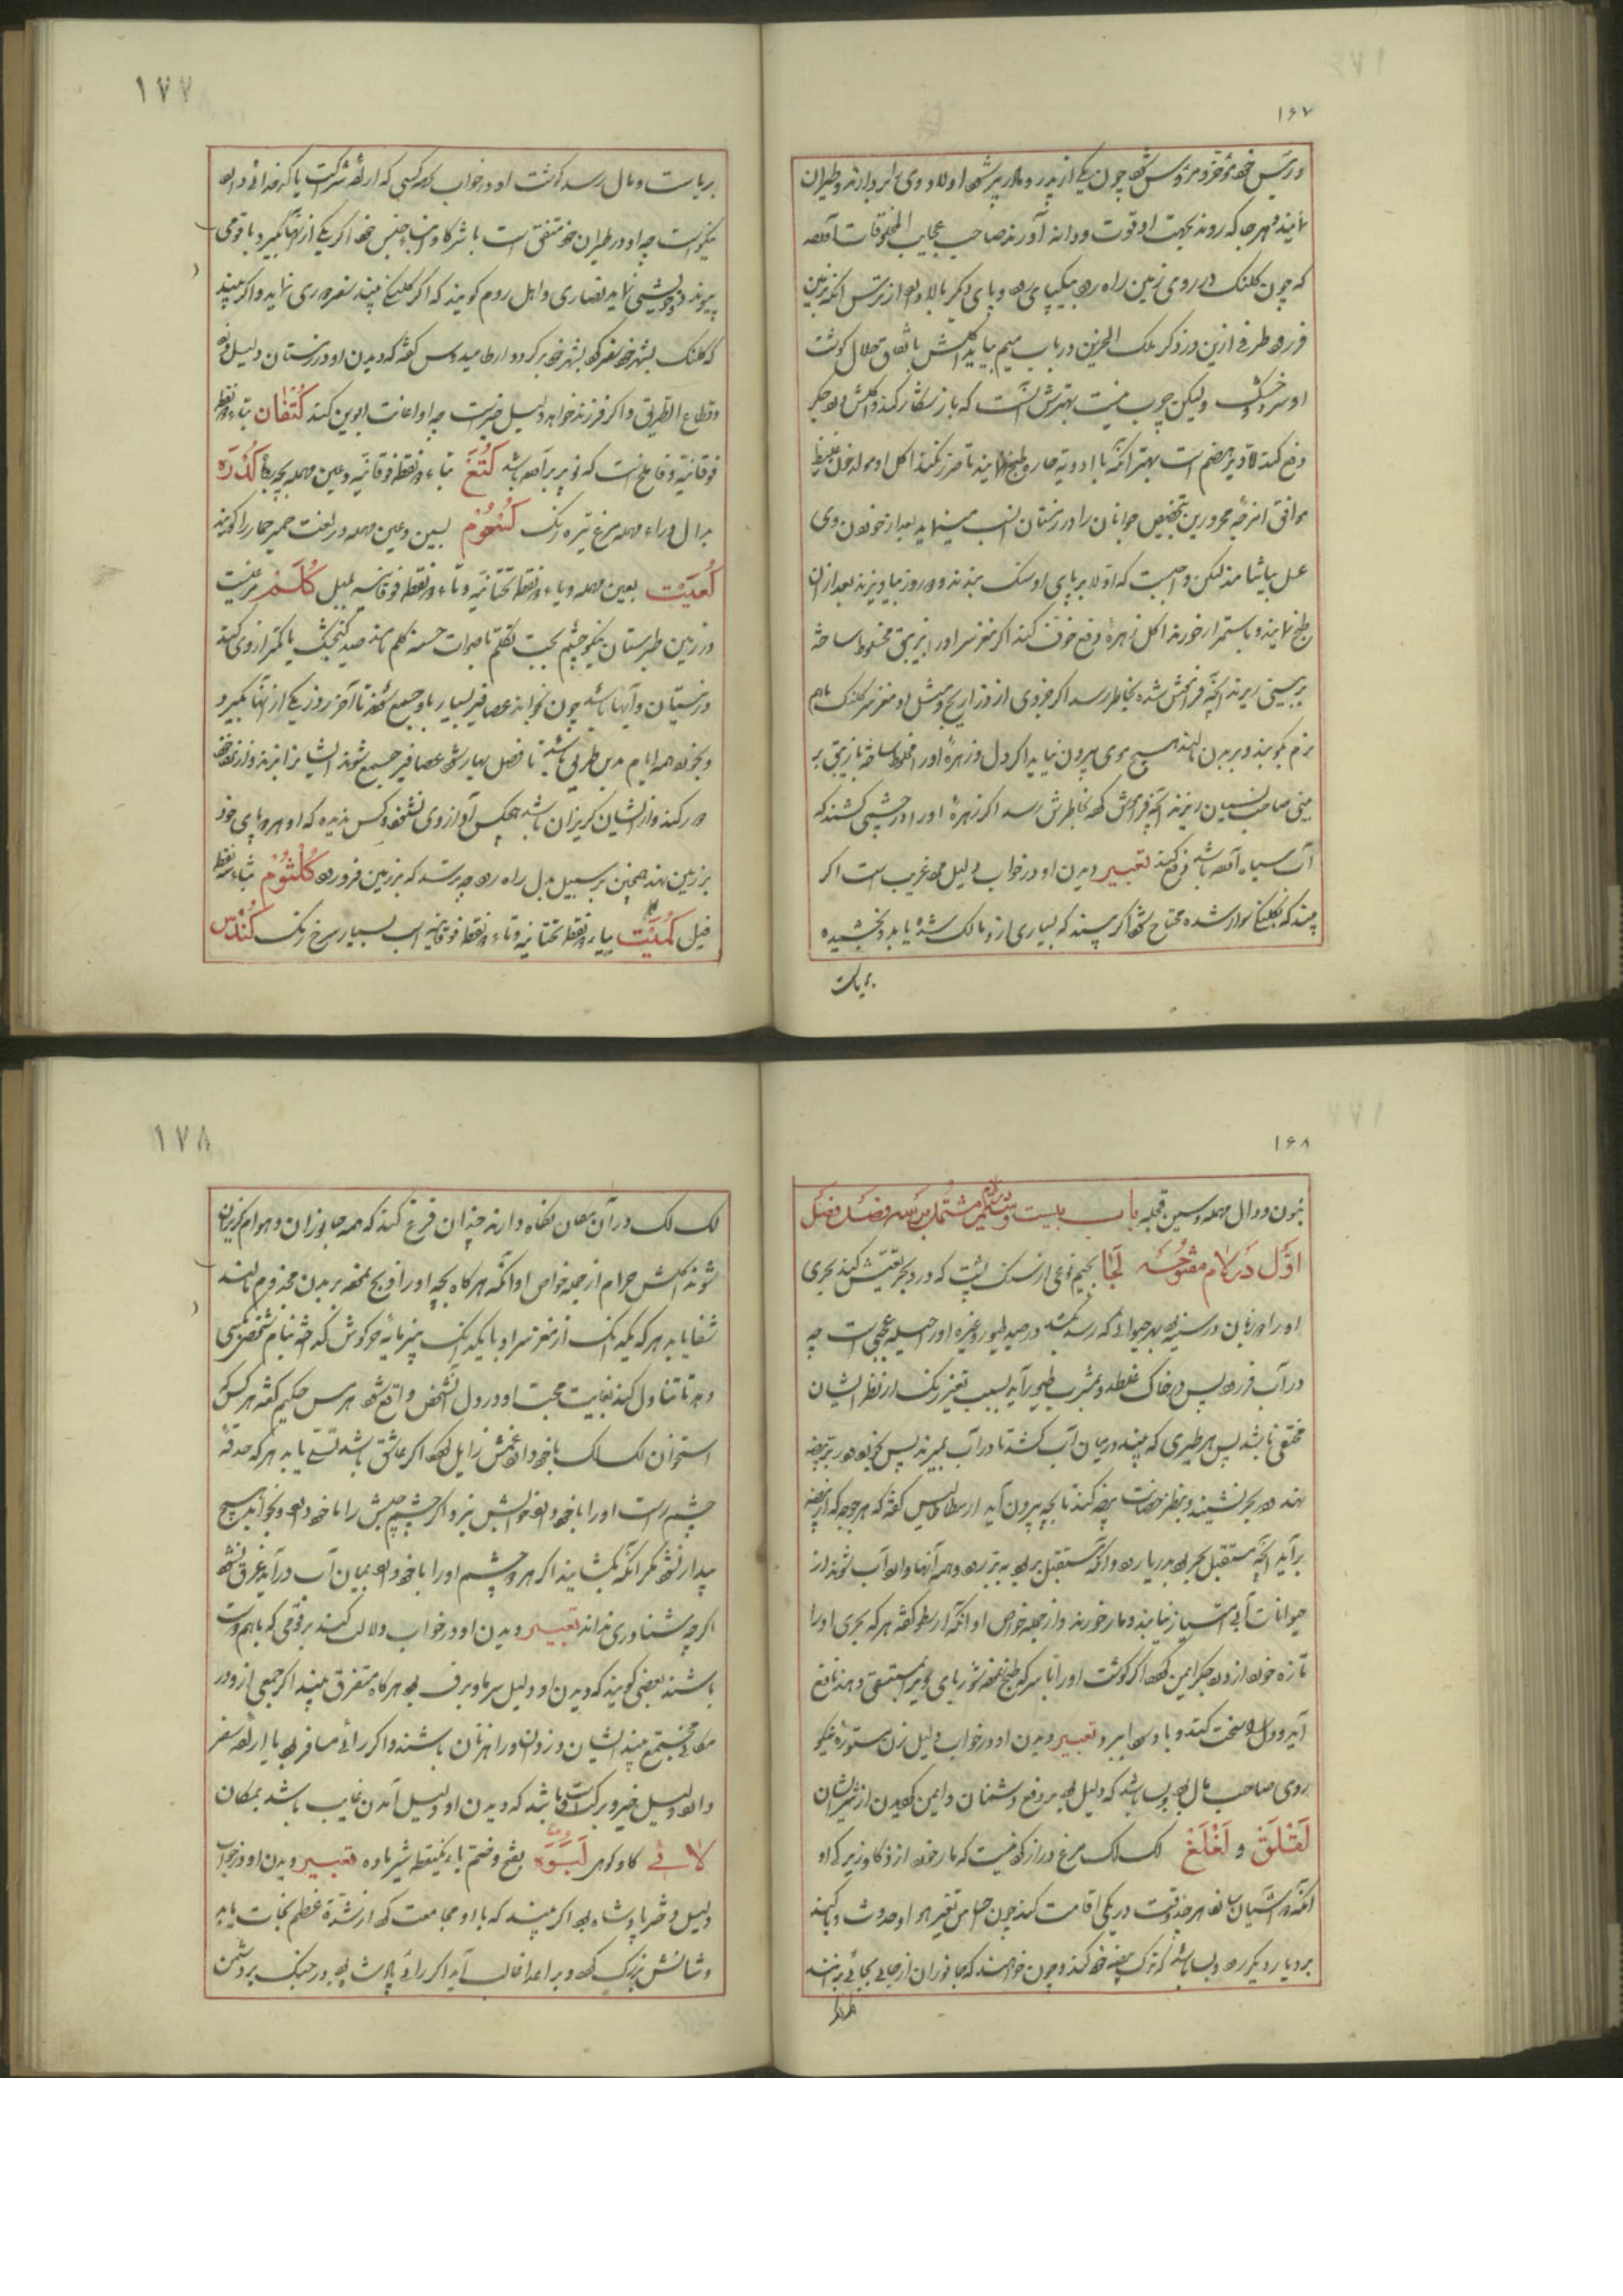 ۱۶۷
و رئیس خود مؤخر و مرؤس شود چون یکی از پدر و مادر پیر شود اولاد وی بر بردارند و طیران
نمایند و بهر جا که روند بجهت او قوت و دانه آورند صاحب عجایب المخلوقات آورده
که چون کلنک در روی زمین راه رود بیکپای رود و پای دیگر بالا دارد از ترس آنکه بزمین
فرو رود طرفی ازین در ذکر ملک الحزین در باب میم بیاید اکلش باتفاق حلال گوشت
او سرد و خشک ولیکن چرب نیست بهترش آنست که باز شکار کند و اکلش درد جگر
دفع کند و دیر هضم است بهتر آنکه با ادویه حاره طبخ نمایند تا ضرر نکند اکل او مولد خون غلیظ
موافق امزجه محرورین بتخصیص جوانان را در زمستان انسب مینماید بعد از خوردن وی
عسل بیاشامند لیکن واجبست که اولا بر پای او سنک بندند و دو روز بیاویزند بعد از آن
طبخ نمایند و باستمرار خورند اکل زهره دفع خوف کند اگر مغز سر او را بزیبق مخلوط ساخته
بر بینی ریزند آنچه فراموش شده بخاطر رسد اگر جزوی از ذراریح و مثل او مغز سر کلنک باهم
نرم بکوبند و بر بدن مالند هیچ موی بیرون نیاید اگر دل و زهره او را مخلوط ساخته با زیبق بر
بینی صاحب نسیان ریزند آنچه فراموش کرده بخاطرش رسد اگر زهره او را در چشمی کشند که
آب سیاه آورده باشد دفع کند تعبیر دیدن او در خواب دلیل مرد غریب است اگر
بیند که بکلنک سوار شده محتاج شود اگر بیند که بسیاری از و مالک شده یا بدو بخشیده
بریاست
۱۷۷
بریاست و مال رسد گوشت او در خواب بهر کسی که اراده شرکت یا کدخدائی دارد
نیکو است چه او در طیران خود متفق است با شرکا و ابناء جنس خود اگر یکی از آنها بگیرد با قومی
پیوند و خویشی نماید نصاری و اهل روم گویند که اگر کلنک بیند سفر دوری نماید و اگر بیند
که کلنک بشهر خود سفر کرد بشهر خود برگردد ارطامیدورس گفته که دیدن او در زمستان دلیل دزد
و قطاع الطریق و اگر فرزند خواهد دلیل خیرست چه او اعانت ابوین کند کُتفان بتاء دو نقطه
فوقانیه و فا ملخست که نو پر برآورده باشد کُتَع بتاء دو نقطه فوقانیه و عین مهمله بچه روباه کُدْرَه
بدال و راء مهمله مرغ تیره رنک کُسْعُوْم بسین و عین مهمله در لغت حمیر حمار را گویند
کُعَیْت بعین مهمله و یاء دو نقطه تحتانیه و تاء دو نقطه فوقانیه بلبل کُلَم مرغیست
در زمین طبرستان نیکو چشم بجهت تکلم باصوات حسنه کلم نامند صید گنجشک یا کمتر از وی کند
در نیستان و آبها باشد چون بخواند عصافیر بسیار باو جمیع شوند تا آخر روز یکی از آنها بگیرد
و بخورد همه ایام بدین طریق باشد تا فصل بهار شود عصافیر جمیع شوند ایشان را بزنند و از نزد خود
دور کنند و از ایشان گریزان باشد هیچکس آواز وی نشنود و کس ندیده که او هر دو پای خود
بر زمین نهد همچنین بر سبیل بدل راه رود چه ترسد که بزمین فرو رود کُلْثُوْم بثاء سه نقطه
فیل کُمَیْت بیاء دو نقطه تحتانیه و تاء دو نقطه فوقانیه اسب بسیار سرخ رنک کُنْدُس
۱۶۸
بنون و دال مهمله و سین قبله باب بیست و ششم مشتمل بر سه فصل فصل
اول در لام مفتوحه لَجَا بجیم نوعی از سنک پشت که در بر و بحر تعیش کند بحری
او را زبان در سینه بود بهر حیوانی که رسد بکشد در صید طیور و غیره او را حیله عجیبی است چه
در آب فرو رود پس در خاک غلطد و بمشرب طیور آید بسبب تغیر رنک از نظر ایشان
مختفی باشد پس هر طیری که بیند در میان آب کشد تا در آب بمیرد پس بخورد و در بر بیضه
نهد در بحر نشیند و بنظر حضانت بیضه کند تا بچه بیرون آید ارسطاطالیس گفته که هر جوجه که از بیضه
برآید آنچه مستقبل بحر بود بدریا رود و آنچه مستقبل بر بود به بر رود و همه آنها وارد آب شوند از
حیوانات آبی امتیاز نیابند و مار خورند و از جمله خواص او آنکه ارسطو گفته هر که بحری او را
تازه خورد از درد جگر ایمن گردد اگر گوشت او را با سرکه طبخ نموده شوربای وی بمستسقی دهند نافع
آید و دل را سخت کند و بادها ببرد تعبیر دیدن او در خواب دلیل زن مستوره نیکو
روی صاحب مال بود و بسا باشد که دلیل بود بر دفع دشمنان و ایمن گردیدن از شر ایشان
لَقْلَق و لَغْلَغ لک لک مرغ دراز گردنیست که مار خورد از ذکا و زیرکی او
آنکه دو آشیان سازد هر چند وقت در یکی اقامت کند چون احساس تغیر هوا و حدوث وبا کند
بدیار دیگر رود و بسا باشد که ترک بیضه خود کند و چون خواهند که جانوران از جائی بجائی برانند
۱۷۸
لک لک در آن مکان نگاه دارند چندان فزع کند که همه جانوران و هوام گریزان
شوند اکلش حرام از جمله خواص او آنکه هرگاه بچه او را ذبح نموده بر بدن مجذوم مالند
شفا یابد هر که یکدانک از مغز سر او با یکدانک پنیر مایه خرگوش گداخته بنام شخص بکسی
دهد تا تناول کند بغایت محبت او در دل آن شخص واقع شود هرمس حکیم گفته هر کس که
استخوان لک لک با خود دارد غمش زایل گردد اگر عاشق باشد تسلی یابد هر که حدقه
چشم راست او را با خود دارد خوابش نبرد و اگر چشم چپش را با خود دارد و بخوابد هیچ
بیدار نشود مگر آنکه بگشایند اگر هر دو چشم او را با خود دارد بمیان آب درآید غرق نشود
اگرچه شناوری نداند تعبیر دیدن او در خواب دلالت کند بر قومی که باهم دوست
باشند بعضی گویند که دیدن او دلیل سرما و برف بود هرگاه متفرق بیند اگر جمعی از و در
مکانی مجتمع بیند ایشان دزدان و راهزنان باشند و اگر رائی مسافر بود یا اراده سفر
دارد دلیل خیر و برکت باشد که دیدن او دلیل آمدن غایب باشد بمکان
لائی گاو کوهی لَبُوَه بفتح و ضم باء یکنقطه شیر ماده تعبیر دیدن او در خواب
دلیل دختر پادشاه بود اگر بیند که با او مجامعت کرد از شدة عظم نجات یابد
و شانش بزرگ گردد و بر اعدا غالب آید اگر رائی پادشاه بود در جنک بر دشمن